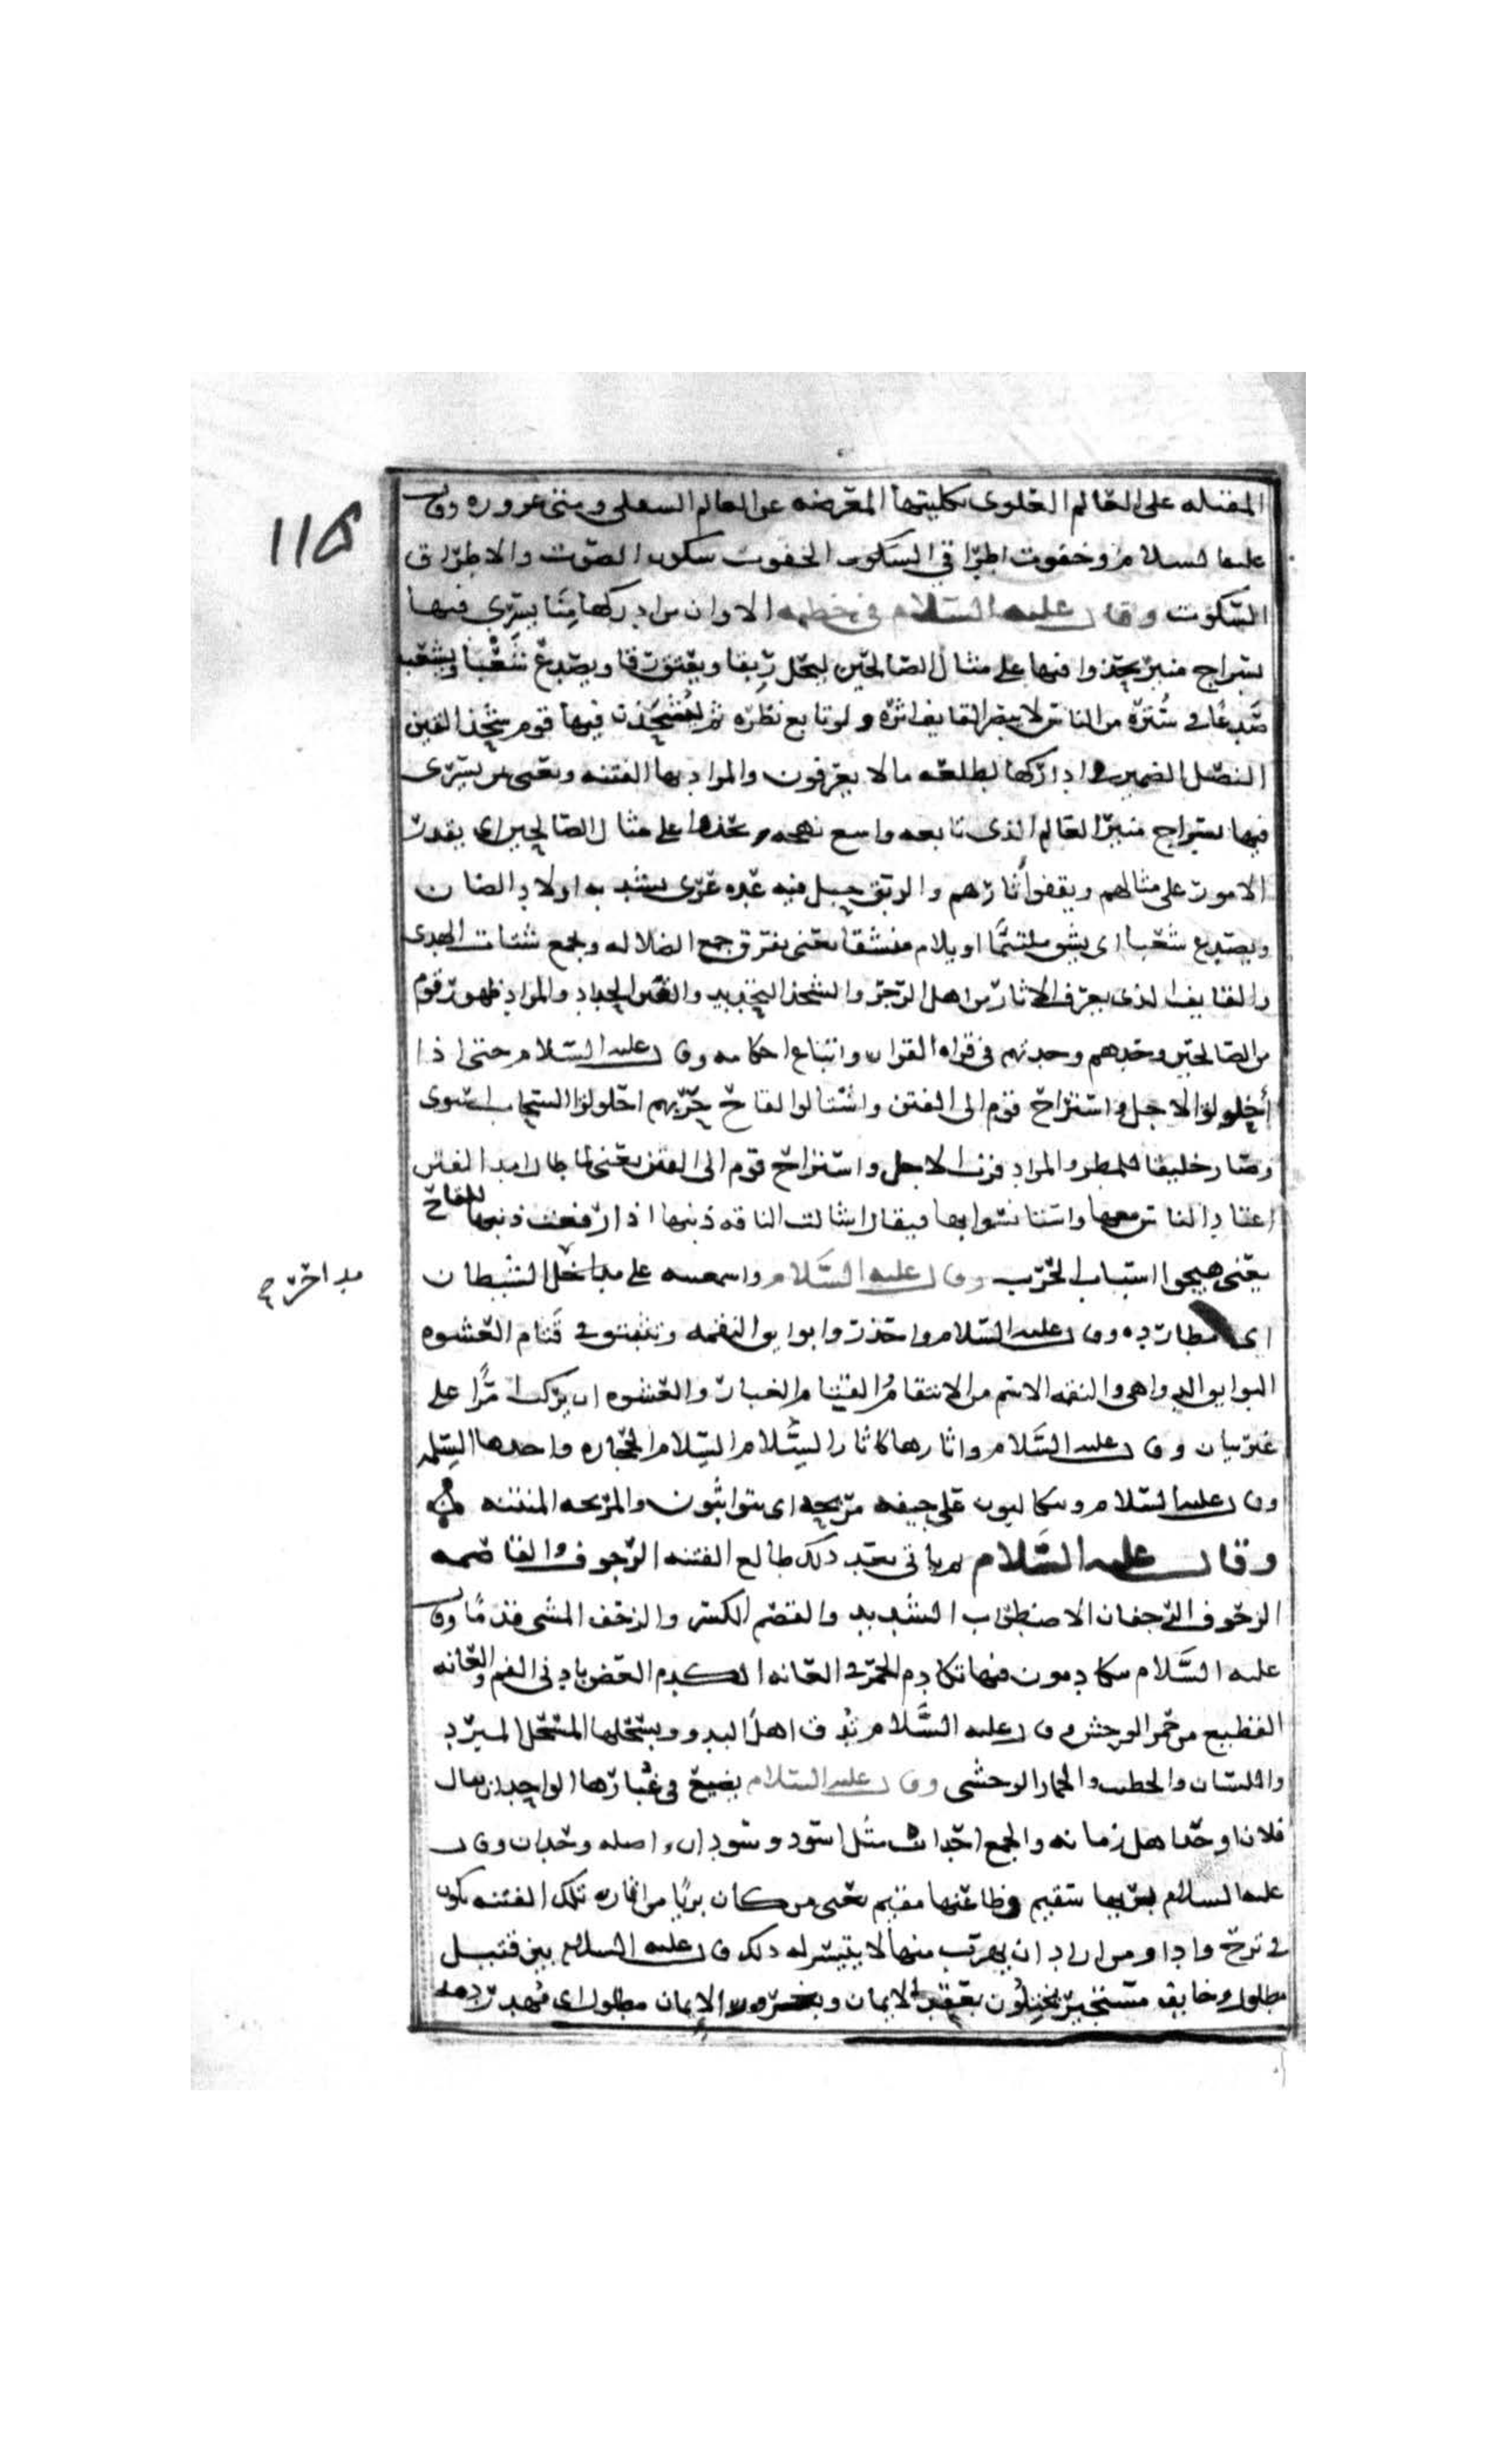 ١١٥
المقبله على العالم العلوى بكليتها المعرضه عن العالم السفلى ومتى غروره وقال
عليه السلام وخفوت اطراقى السكون الخفوت سكون الصوت والاطراق
السكوت وقال عليه السلام فى خطبه الا وان من ادركها منا يسرى فيها
بسراج منير يحذوا فيها على مثال الصالحين ليحل ربقا ويعتق رقا ويصدع شعبا ويشعب
صدعا فى سترة من الناس لا يبصر القايف اثره ولو تابع نظره ثم ليشحذن فيها قوم شحذ القين
النصل الضمير فى ادركها لطلعه ما لا يعرفون والمراد بها الفتنه ويعنى من يسرى
فيها بسراج منير العالم الذى تابعه واسع نهجه ويحذوا على مثال الصالحين اى يقدر
الامور على مثالهم ويقفوا آثارهم والربق حبل فيه عده عرى يشد به اولاد الضان
ويصدع شعبا اى يشق ملتئما او يلام منشقا يعنى يفرق جمع الضلاله ويجمع شتات الهدى
والقايف الذى يعرف الاثار من اهل الزجر والشحذ التحديد والقين الحداد والمراد ظهور قوم
من الصالحين وحدهم وحدتهم فى قراه القران واتباع احكامه وقال عليه السلام حتى اذا
أخلولق الاجل واستراح قوم الى الفتن واشتالوا لقاح حربهم اخلولق السحاب استوى
وصار خليقا للمطر والمراد قرب الاجل واستراح قوم الى الفتن يعنى لما طال امد الفتن
اعتاد الناس معها واستانسوا بها فيقال شالت الناقه ذنبها اذا رفعت ذنبها للقاح
يعنى هيجوا اسباب الحرب وقال عليه السلام واستعينه على مداحل الشيطان
مداحره
اى مطارده وقال عليه السلام واحذروا بوايق النقمه وتثبتوا فى قتام العشوه
البوايق الدواهى والنقمه الاسم من الانتقام والقتام الغبار والعشوه ان يركب امرا على
غير بيان وقال عليه السلام واثارها كاثار السلام السلام الحجاره واحدها السلمه
وقال عليه السلام ويتكالبون على جيفه مريحه اى يتواثبون والمريحه المنتنه
وقال عليه السلام ثم ياتى بعد ذلك طالع الفتنه الرجوف والقاصمه
الزحوف الرجفان الاضطراب الشديد والقصم الكسر والزحف المشى قدما وقال
عليه السلام يتكادمون فيها تكادم الحمر فى العانه الكدم العض بادنى الفم والعانه
القطيع من حمر الوحش وقال عليه السلام تدق اهل البدو وبمسحلها المسحل المبرد
واللسان والخطيب والحمار الوحشى وقال عليه السلام يضيع فى غبارها الواحدان يقال
فلان اوحد اهل زمانه والجمع احدان مثل اسود وسودان واصله وحدان وقال
عليه السلام بريها سقيم وظاعنها مقيم يعنى من كان بريا من اثاره تلك الفتنه يكون
فى ترح واذا ومن اراد ان يهرب منها لا يتيسر له ذلك قال عليه السلام بين قتيل
مطلول وخايف مستجير يختلون بعقد الايمان وبغرور الإيمان مطلول اى مهدر دمه